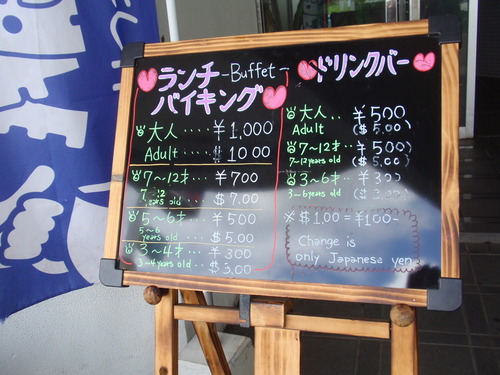 ランチ -Buffet-
バイキング
大人・・・・￥1,000
Adult ・・・・ $ 10.00
7～12才・・￥700
7～12 years old・・$ 7.00
5～6才・・￥500
5～6 years old・・$ 5.00
3～4才・・￥300
3～4 years old・・$ 3.00
ドリンクバー
大人・・￥500
Adult ($ 5.00)
7～12才・・￥500
7～12 years old ($ 5.00)
3～6才・・￥300
3～6 years old ($ 3.00)
※ $1.00 = ￥100-
Change is
only Japanese yen